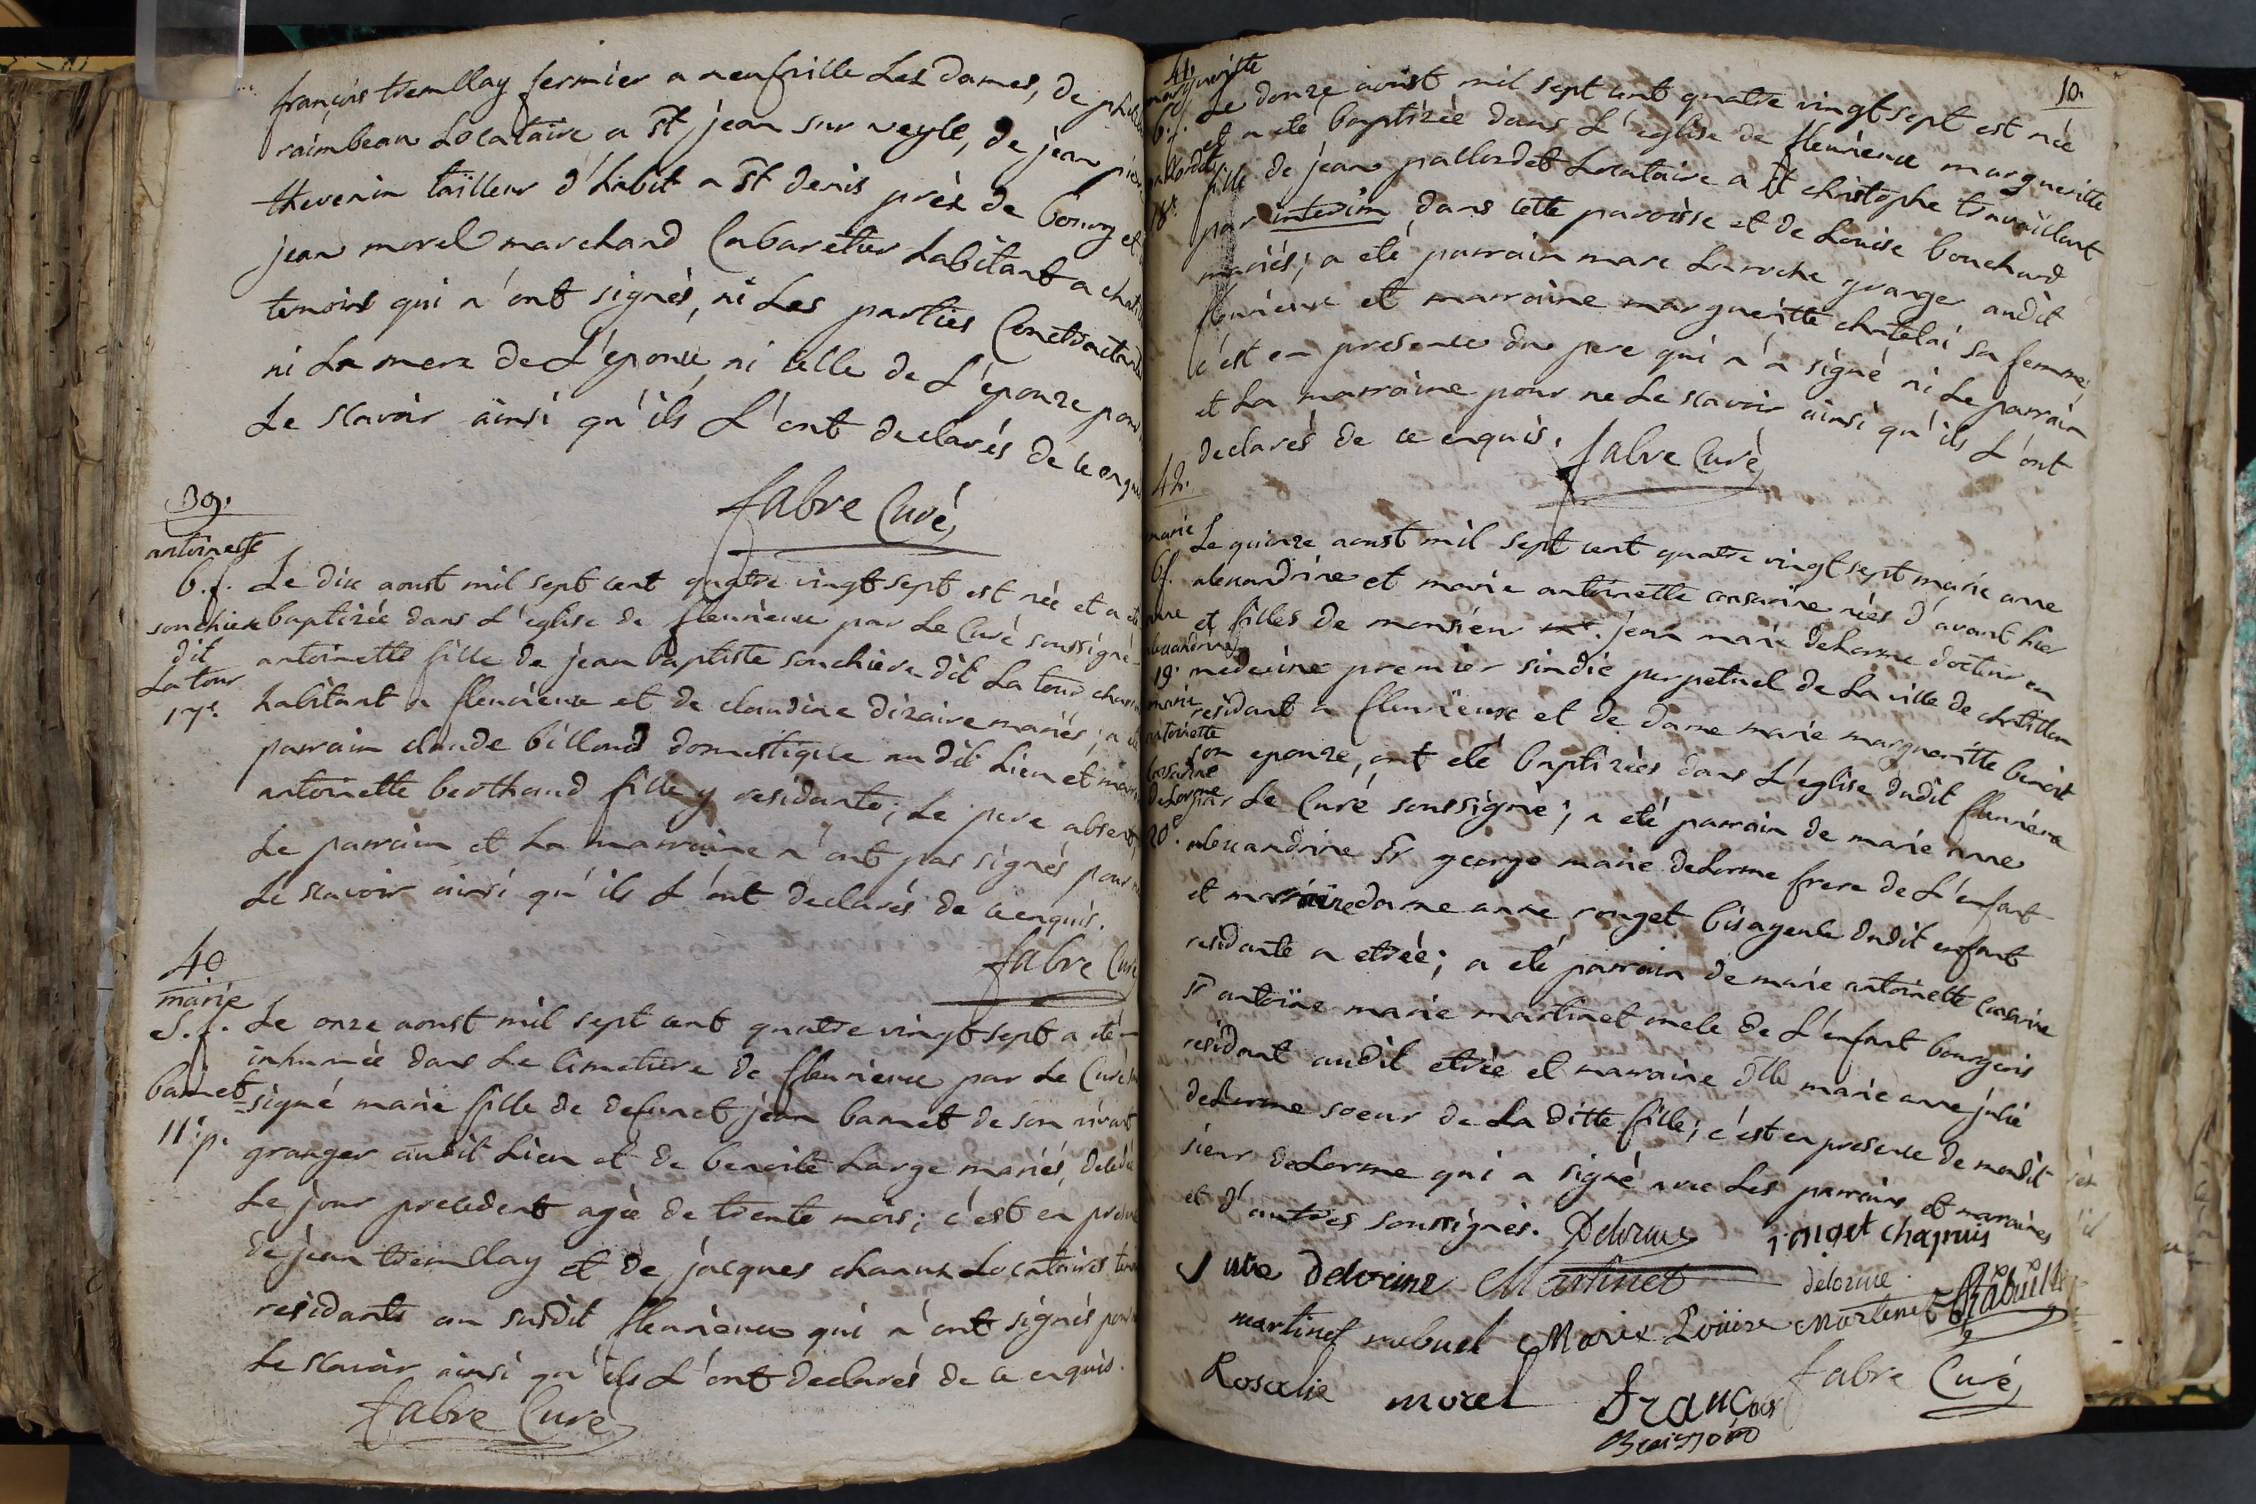 françois tremllay fermier a neufville Les dames, de
raimbeau Locataire a st jean sur veyle, de jean
thevenin tailleur d'habit a st denis près de bourg et
jean morel marchand Cabaretier habitant a
temoins qui n'ont signés, ni Les parties
ni La mere de L'epoux, ni celle de L'epouze
Le scavoir ainsi qu'ils L'ont declarés de ce
fabre Curé
39.
antoinette
b.f.
sonchiere
dit
La tour
17e.
Le dix aoust mil sept cent quatre vingt sept est née et a
baptizée dans L'eglise de fleurieux par Le Curé soussigné
antoinette fille de jean baptiste sonchiere dit La tour
habitant a fleurieux et de claudine dizaire mariés; a
parrain claude billoud domestique au dit Lieu et
antoinette berthaud fille y residante; Le pere absent,
Le parrain et La marraine n'ont pas signés pour
Le scavoir ainsi qu'ils L'ont declarés de ce enquis.
fabre Curé
40
marie
S.f.
bamet
11e. p.
Le onze aoust mil sept cent quatre vingt sept a eté
inhumée dans Le Cimetiere de fleurieux par Le Curé
signé marie fille de defunct jean bamet de son vivant
granger audit Lieu et de benoite Large mariés,
Le jour precedent agée de trente mois; c'est en
de jean tremllay et de jacques chanux Locataires
residants au susdit fleurieux qui n'ont signés
Le scavoir ainsi qu'ils L'ont declarés de ce enquis.
fabre Curé
10.
41.
margueritte
b.f.
pallordet
18e.
Le douze aoust mil sept cent quatre vingt sept est née
et a eté baptizée dans L'eglise de fleurieux margueritte
fille de jean pallordet Locataire a st christophe travaillant
par interim dans cette paroisse et de Louise bouchard
mariés; a eté parrain marc Laroche granger audit
fleurieux et marraine margueritte chatelai sa femme;
c'est en presence du pere qui n'a signé ni Le parrain
et La marraine pour ne Le scavoir ainsi qu'ils L'ont
declarés de ce enquis.
fabre Curé
42.
marie
bf.
anne
alexandrine
19.
marie
antoinette
cesarine
deLorme
20e.
Le quinze aoust mil sept cent quatre vingt sept marie anne
alexandrine et marie antoinette cesarine nées d'avant hier
et filles de monsieur jean marie deLorme docteur en
medecine premier sindic perpetuel de La ville de chatillon
residant a fleurieux et de dame marie margueritte benoit
son epouze, ont eté baptizées dans L'eglise dudit fleurieux
par Le Curé soussigné; a eté parrain de marie anne
alexandrine sr george marie deLorme frere de L'enfant
et marraine dame anne ronget bisayeule dudit enfant
residante a etrée; a eté parrain de marie antoinette Cesarine
sr antoine marie martinet oncle de L'enfant bourgeois
residant audit etrée et marraine dlle marie anne julie
deLorme soeur de La ditte fille; c'est en presence de mondit
sieur deLorme qui a signé avec Les parrains et marraines
et d'autres soussignés. Delorme ronget chapuis
delorime Martinet delorme
martinet mabuel Marie Louise Martinet
Rosalie morel françois fabre Curé